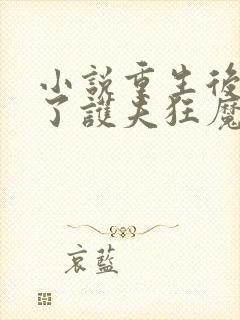 小說重生後
了護夫狂魔
哀藍